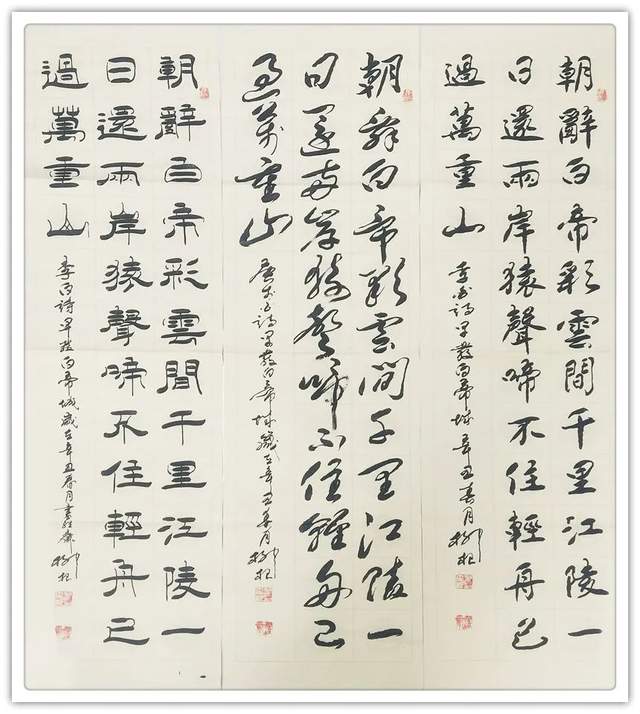 朝辭白帝彩雲間千里江陵一
日還兩岸猿聲啼不住輕舟已
過萬重山
李白詩早發白帝城辛丑春月
朝辭白帝彩雲間千里江陵一
日還兩岸猿聲啼不住輕舟已
過萬重山
唐李白詩早發白帝城歲在辛丑春月
朝辭白帝彩雲間千里江陵一
日還兩岸猿聲啼不住輕舟已
過萬重山
李白詩早發白帝城歲在辛丑春月書於